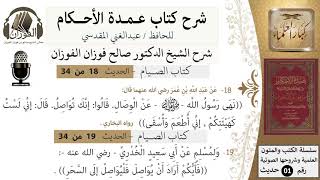 شرح كتاب عمدة الأحكام
للحافظ / عبدالغني المقدسي
شرح الشيخ الدكتور صالح فوزان الفوزان
كتاب الصيام - الحديث 18 من 34
18- عَنْ عَبْدِ اللهِ بْنِ عُمَرَ رضي الله عنهما قال:
((نَهَى رَسُولُ اللهِ - ﷺ - عَنْ الْوِصَالِ. قَالُوا: إِنَّك تُوَاصِلُ. قَالَ: إِنِّي لَسْتُ
كَهَيْئَتِكُمْ، إِنِّي أُطْعَمُ وَأُسْقَى)). رواه البخاري
كتاب الصيام - الحديث 19 من 34
19- وَلِمُسْلِمٍ عَنْ أَبِي سَعِيدٍ الْخُدْرِيِّ - رضي الله عنه -:
((فَأَيُّكُمْ أَرَادَ أَنْ يُوَاصِلَ فَلْيُوَاصِلْ إِلَى السَّحَرِ)).
الفوزان
سلسلة الكتب والمتون
العلمية وشروحها الصوتية
رقم 01 حديث